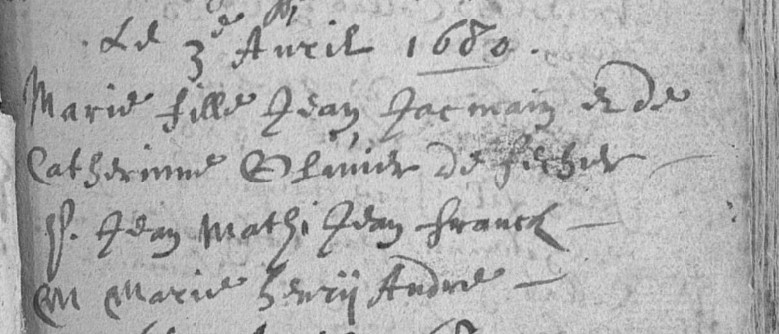 Le 3e Auril 1680.
Marie fille Jean Jacmain & de
Catherinne Oliuier de
P. Jean Mathi Jean franck
M Marie henrÿ Andre